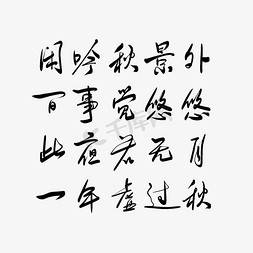 闲吟秋景外
百事觉悠悠
此夜若无月
一年虚过秋